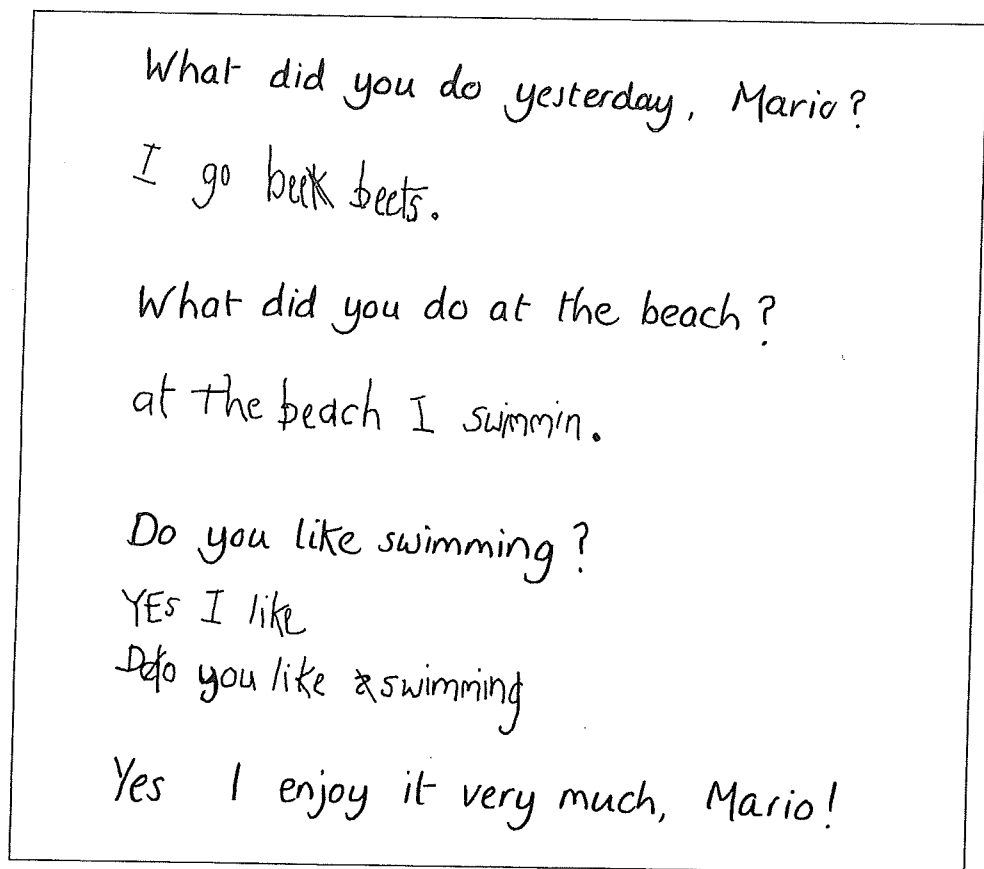 What did you do yesterday, Mario?
I go beets.
What did you do at the beach?
at the beach I swimmin.
Do you like swimming?
YEs I like
do you like swimming
Yes I enjoy it very much, Mario!